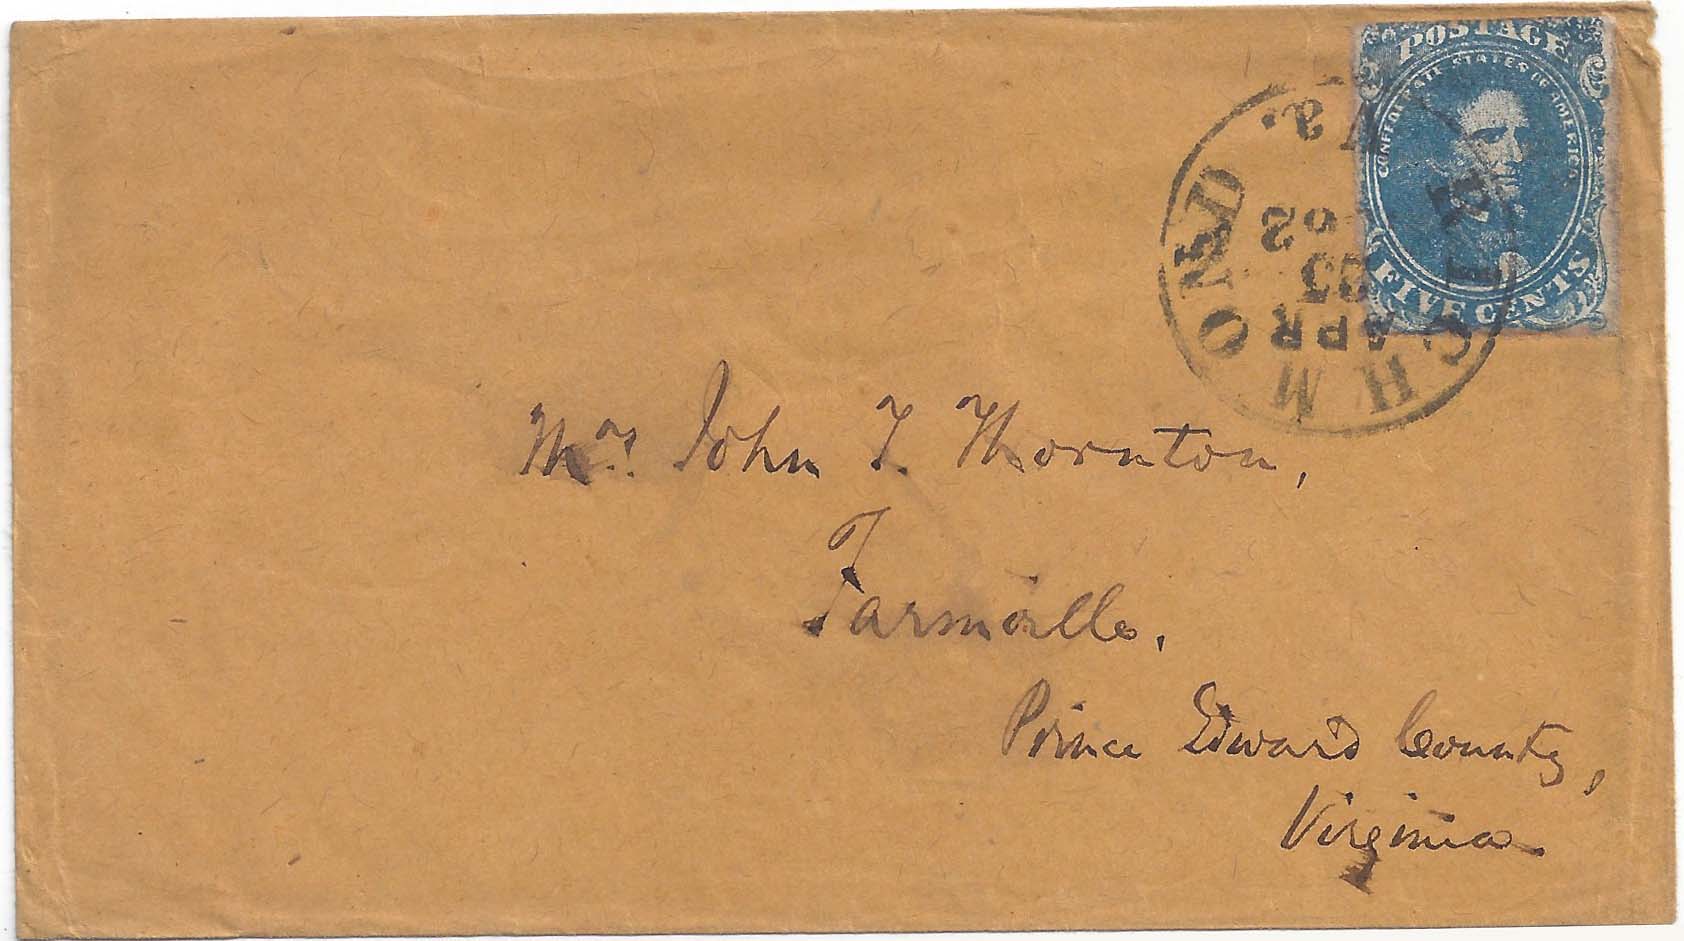 POSTAGE
CONFEDERATE STATES OF AMERICA
FIVE CENTS
RICHMOND Va.
APR
62
Mrs. John T. Thornton,
Farmville,
Prince Edward County,
Virginia